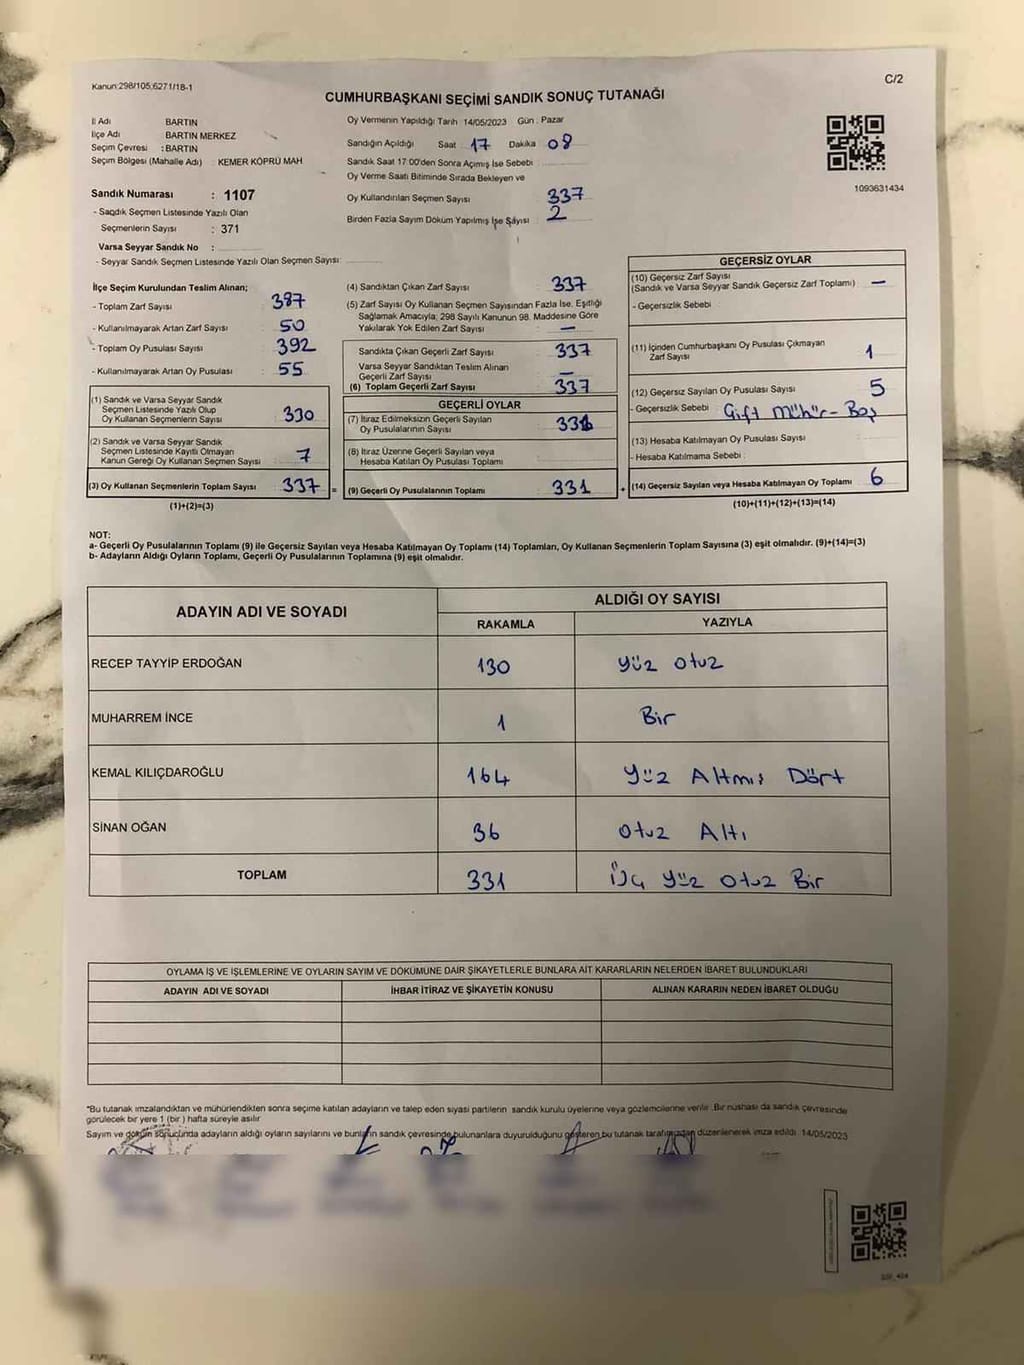 Kanun:298/105;6271/18-1
C/2
CUMHURBAŞKANI SEÇİMİ SANDIK SONUÇ TUTANAĞI
İl Adı BARTIN
İlçe Adı BARTIN MERKEZ
Seçim Çevresi : BARTIN
Seçim Bölgesi (Mahalle Adı) : KEMER KÖPRÜ MAH
Sandık Numarası : 1107
- Sandık Seçmen Listesinde Yazılı Olan
Seçmenlerin Sayısı : 371
Varsa Seyyar Sandık No :
- Seyyar Sandık Seçmen Listesinde Yazılı Olan Seçmen Sayısı:
Oy Vermenin Yapıldığı Tarih 14/05/2023 Gün : Pazar
Sandığın Açıldığı Saat 17 Dakika 08
Sandık Saat 17:00'den Sonra Açımış İse Sebebi
Oy Verme Saati Bitiminde Sırada Bekleyen ve
Oy Kullandırılan Seçmen Sayısı 337
Birden Fazla Sayım Döküm Yapılmış İse Sayısı 2
1093631434
İlçe Seçim Kurulundan Teslim Alınan;
- Toplam Zarf Sayısı 387
- Kullanılmayarak Artan Zarf Sayısı 50
- Toplam Oy Pusulası Sayısı 392
- Kullanılmayarak Artan Oy Pusulası 55
(1) Sandık ve Varsa Seyyar Sandık
Seçmen Listesinde Yazılı Olup
Oy Kullanan Seçmenlerin Sayısı 330
(2) Sandık ve Varsa Seyyar Sandık
Seçmen Listesinde Kayıtlı Olmayan
Kanun Gereği Oy Kullanan Seçmen Sayısı 7
(3) Oy Kullanan Seçmenlerin Toplam Sayısı 337 =
(1)+(2)=(3)
(4) Sandıktan Çıkan Zarf Sayısı 337
(5) Zarf Sayısı Oy Kullanan Seçmen Sayısından Fazla İse, Eşitliği
Sağlamak Amacıyla; 298 Sayılı Kanunun 98. Maddesine Göre
Yakılarak Yok Edilen Zarf Sayısı —
Sandıkta Çıkan Geçerli Zarf Sayısı 337
Varsa Seyyar Sandıktan Teslim Alınan
Geçerli Zarf Sayısı —
(6) Toplam Geçerli Zarf Sayısı 337
GEÇERLİ OYLAR
(7) İtiraz Edilmeksizin Geçerli Sayılan
Oy Pusulalarının Sayısı 331
(8) İtiraz Üzerine Geçerli Sayılan veya
Hesaba Katılan Oy Pusulası Toplamı
(9) Geçerli Oy Pusulalarının Toplamı 331 +
GEÇERSİZ OYLAR
(10) Geçersiz Zarf Sayısı
(Sandık ve Varsa Seyyar Sandık Geçersiz Zarf Toplamı) —
- Geçersizlik Sebebi
(11) İçinden Cumhurbaşkanı Oy Pusulası Çıkmayan
Zarf Sayısı 1
(12) Geçersiz Sayılan Oy Pusulası Sayısı 5
- Geçersizlik Sebebi Çift mühür - Boş
(13) Hesaba Katılmayan Oy Pusulası Sayısı
- Hesaba Katılmama Sebebi
(14) Geçersiz Sayılan veya Hesaba Katılmayan Oy Toplamı 6
(10)+(11)+(12)+(13)=(14)
NOT:
a- Geçerli Oy Pusulalarının Toplamı (9) ile Geçersiz Sayılan veya Hesaba Katılmayan Oy Toplamı (14) Toplamları, Oy Kullanan Seçmenlerin Toplam Sayısına (3) eşit olmalıdır. (9)+(14)=(3)
b- Adayların Aldığı Oyların Toplamı, Geçerli Oy Pusulalarının Toplamına (9) eşit olmalıdır.
ADAYIN ADI VE SOYADI
ALDIĞI OY SAYISI
RAKAMLA YAZIYLA
RECEP TAYYİP ERDOĞAN 130 Yüz otuz
MUHARREM İNCE 1 Bir
KEMAL KILIÇDAROĞLU 164 Yüz Altmış Dört
SİNAN OĞAN 36 Otuz Altı
TOPLAM 331 Üç yüz Otuz Bir
OYLAMA İŞ VE İŞLEMLERİNE VE OYLARIN SAYIM VE DÖKÜMÜNE DAİR ŞİKAYETLERLE BUNLARA AİT KARARLARIN NELERDEN İBARET BULUNDUKLARI
ADAYIN ADI VE SOYADI İHBAR İTİRAZ VE ŞİKAYETİN KONUSU ALINAN KARARIN NEDEN İBARET OLDUĞU
*Bu tutanak imzalandıktan ve mühürlendikten sonra seçime katılan adayların ve talep eden siyasi partilerin sandık kurulu üyelerine veya gözlemcilerine verilir. Bir nüshası da sandık çevresinde
görülecek bir yere 1 (bir) hafta süreyle asılır
Sayım ve döküm sonucunda adayların aldığı oyların sayılarını ve bunların sandık çevresinde bulunanlara duyurulduğunu gösteren bu tutanak tarafımızdan düzenlenerek imza edildi. 14/05/2023